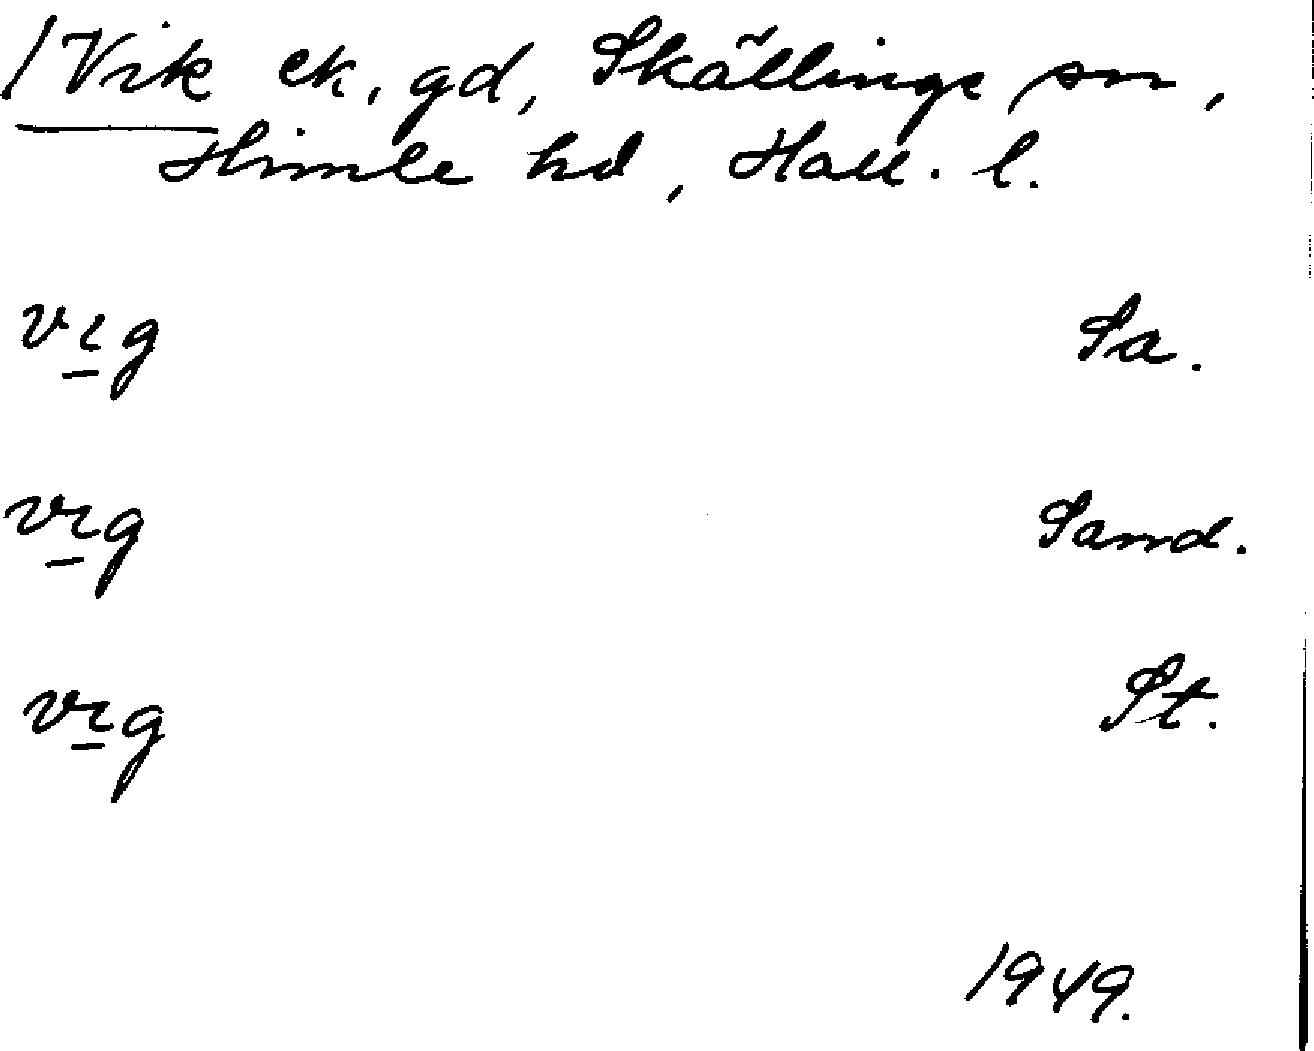 /Vik ek. gd, Skällinge sn,
Himle hd, Hall. l.
vıg Sa.
vıg Sand.
vıg St.
1949.